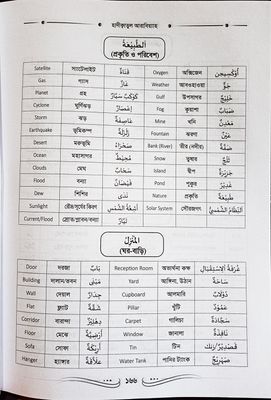 হাদীকাতুল আরাবিয়্যাহ
اَلطَّبِيْعَةُ
(প্রকৃতি ও পরিবেশ)
Satellite স্যাটেলাইট قَنَاةٌ Oxygen অক্সিজেন أُوْكْسِيجِن
Gas গ্যাস غَازٌ Weather আবহাওয়া جَوٌّ
Planet গ্রহ كَوْكَبٌ سَيَّارٌ Gulf উপসাগর خَلِيْجٌ
Cyclone ঘূর্ণিঝড় إِعْصَارٌ Fog কুয়াশা ضَبَابٌ
Storm ঝড় عَاصِفَةٌ Mine খনি مَعْدِنٌ
Earthquake ভূমিকম্প زَلْزَلَةٌ Fountain ঝরণা عَيْنٌ
Desert মরুভূমি صَحْرَاءُ Bank (River) তীর (নদীর) ضِفَّةٌ
Ocean মহাসাগর مُحِيْطٌ Snow তুষার ثَلْجٌ
Cloud মেঘ سَحَابٌ Island দ্বীপ جَزِيْرَةٌ
Flood বন্যা فَيْضَانٌ Pond পুকুর غَدِيْرٌ
Dew শিশির نَدًى Nature প্রকৃতি طَبِيْعَةٌ
Sunlight রৌদ্র/সূর্যের কিরণ أَشِعَّةُ الشَّمْسِ Solar System সৌরজগৎ اَلنِّظَامُ الشَّمْسِيُّ
Current/Flood স্রোত/প্লাবন/বন্যা تَيَّارٌ
اَلْمَنْزِلُ
(ঘর-বাড়ি)
Door দরজা بَابٌ Reception Room অভ্যর্থনা কক্ষ غُرْفَةُ الْاِسْتِقْبَالِ
Building দালান/ভবন مَبْنًى Yard আঙ্গিনা, উঠান سَاحَةٌ
Wall দেয়াল جِدَارٌ Cupboard আলমারি دُوْلَابٌ
Flat ফ্ল্যাট شَقَّةٌ Pillar খুঁটি عَمُوْدٌ
Corridor বারান্দা دِهْلِيْزٌ Carpet গালিচা سَجَّادَةٌ
Floor মেঝে أَرْضِيَّةٌ Window জানালা نَافِذَةٌ
Sofa সোফা أَرِيْكَةٌ Tin টিন قَصْدِيْرٌ/زِنْك
Hanger হ্যাঙ্গার عَلَّاقَةٌ Water Tank পানির ট্যাংক صِهْرِيْجٌ
১৬৬